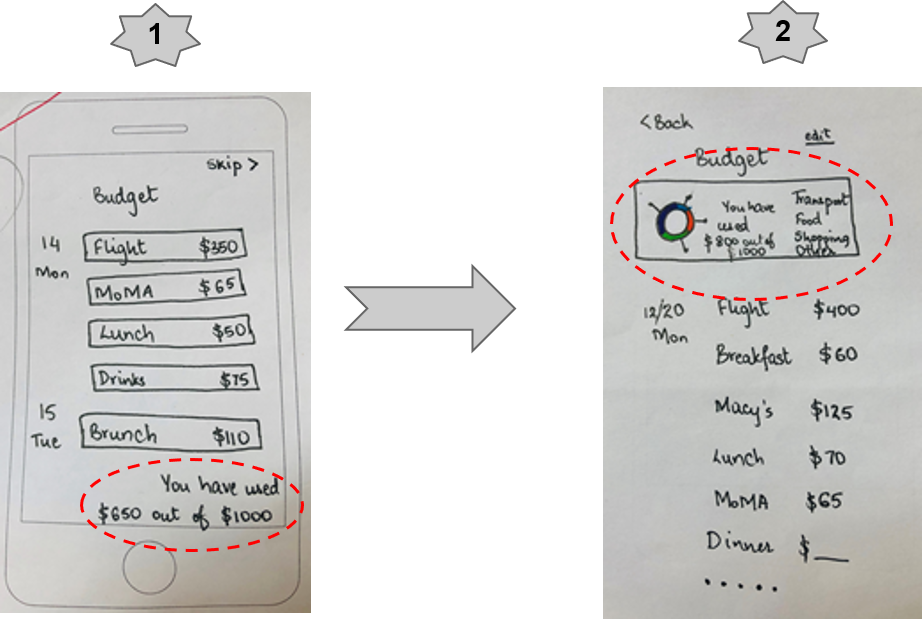 1
Skip >
Budget
14 Mon
Flight $350
MoMA $65
Lunch $50
Drinks $75
15 Tue
Brunch $110
You have used
$650 out of $1000
2
<Back
edit
Budget
You have
used
$800 out of
$1000
Transport
Food
Shopping
Other
12/20 Mon
Flight $400
Breakfast $60
Macy's $125
Lunch $70
MoMA $65
Dinner $__
.....